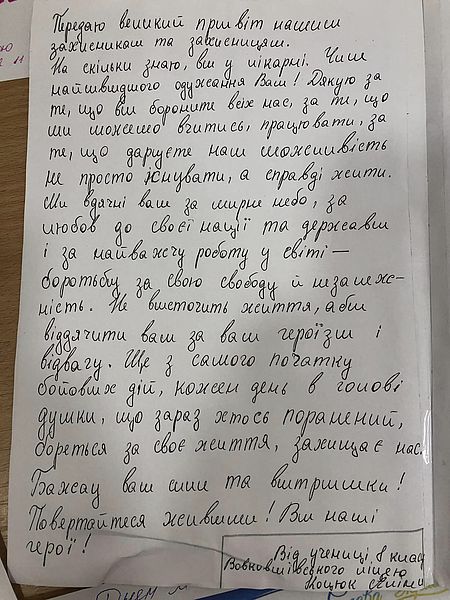 Передаю великий привіт нашим
захисникам та захисницям.
На скільки знаю, ви у лікарні. Чим
найшвидшого одужання Вам! Дякую за
те, що ви бороните всіх нас, за ти, що
ми можемо вчитись, працювати, за
те, що даруєте нам можливість
не просто існувати, а справді жити.
Ми вдячні вам за мирне небо, за
любов до своєї нації та держави
і за найважчу роботу у світі —
боротьбу за свою свободу й незалеж-
ність. Не вистачить життя, аби
віддячити вам за ваш героїзм і
відвагу. Ще з самого початку
бойових дій, кожен день в голові
думки, що зараз хтось поранений,
бореться за своє життя, захищає нас.
Бажаю вам сили та витримки!
Повертайтеся живими! Ви наші
герої!
Від учениці 8 класу
ліцею
Коцюк